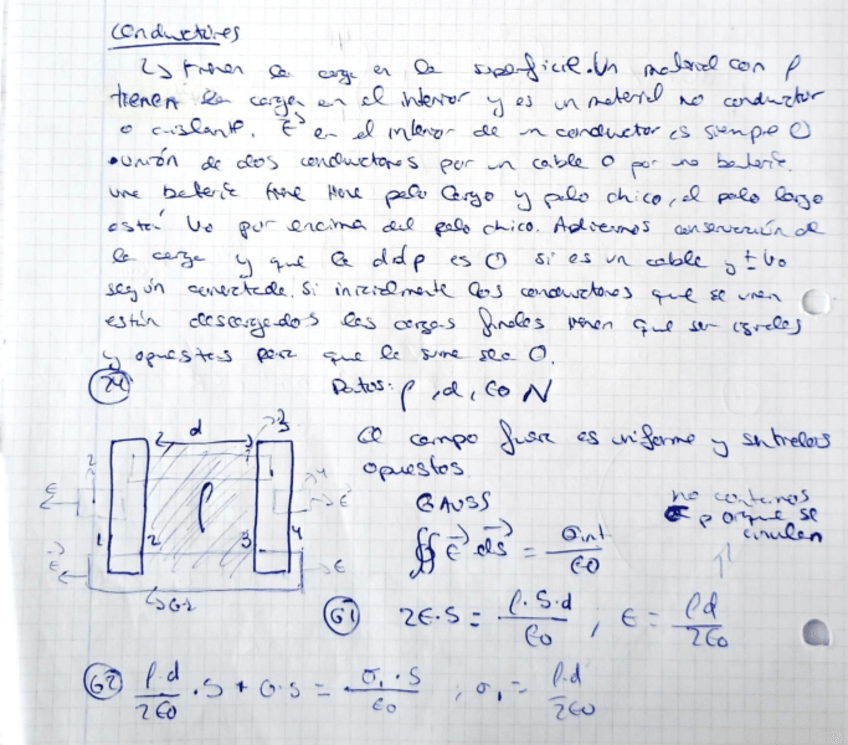 conductores
↳ tienen la carga en la superficie. Un material con ρ
tienen la carga en el interior y es un material no conductor
o aislante. E⃗ en el interior de un conductor es siempre 0
• unión de dos conductores por un cable o por una batería.
una batería tiene tiene palo largo y palo chico, el palo largo
está V0 por encima del palo chico. Aplicamos conservación de
la carga y que la ddp es 0 si es un cable y ±V0
según conectada. Si inicialmente los conductores que se unen
están descargados las cargas finales tienen que ser iguales
y opuestas para que la suma sea 0.
24 Datos: ρ, d, ε0 N
El campo fuera es uniforme y sentidos
opuestos.
GAUSS
no contamos
σ porque se
anulan
∯ E⃗ ds⃗ = Qint / ε0
G1 2E·S = ρ·S·d / ε0 ; E = ρd / 2ε0
d
E ρ E
1 2 3 4
G2
G2 ρ·d / 2ε0 · S + 0·S = σ1·S / ε0 ; σ1 = ρ·d / 2ε0